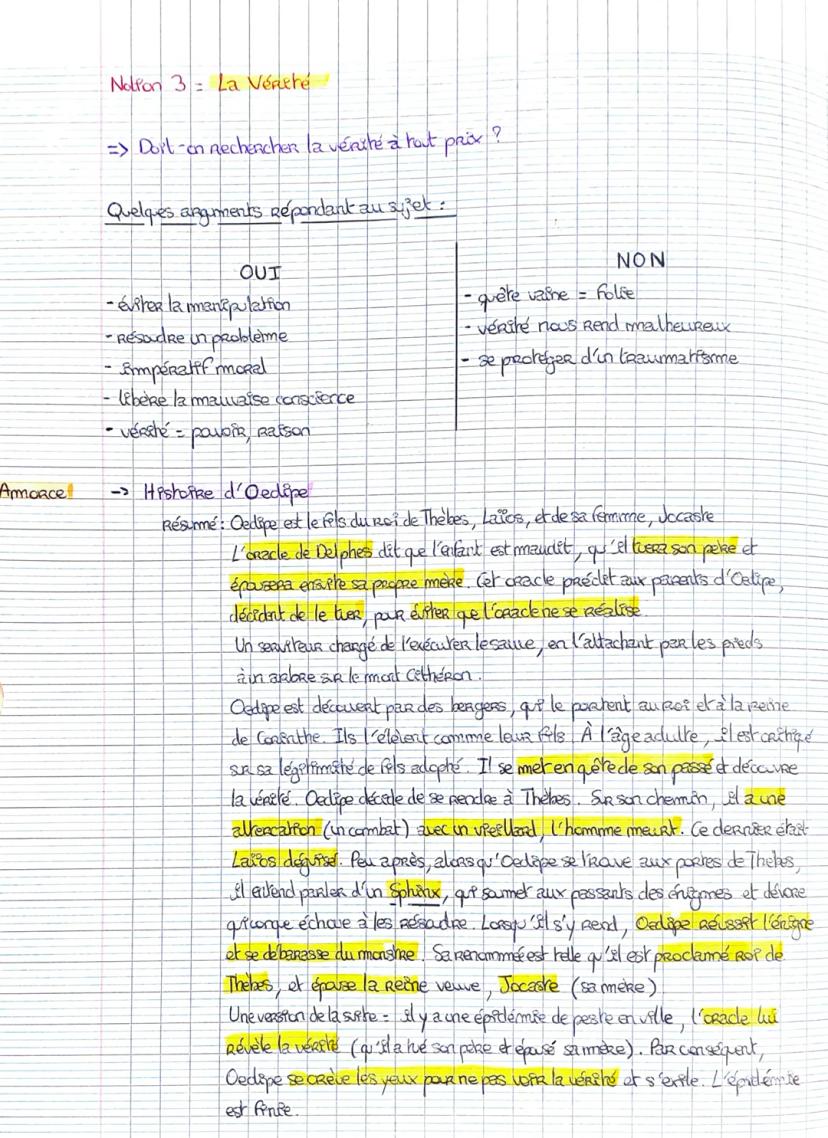 Notion 3 = La Vérité
=> Doit-on rechercher la vérité à tout prix ?
Quelques arguments répondant au sujet :
OUI
- éviter la manipulation
- Résoudre un problème
- impératif moral
- libère la mauvaise conscience
- vérité = pouvoir, raison
NON
- quête vaine = folie
- vérité nous rend malheureux
- se protéger d'un traumatisme
Amorce!
-> Histoire d'Oedipe
Résumé : Oedipe est le fils du Roi de Thèbes, Laïos, et de sa femme, Jocaste
L'oracle de Delphes dit que l'enfant est maudit, qu'il tuera son père et
épousera ensuite sa propre mère. Cet oracle prédit aux parents d'Oedipe,
décident de le tuer, pour éviter que l'oracle ne se réalise.
Un serviteur chargé de l'exécuter le sauve, en l'attachant par les pieds
à un arbre sur le mont Cithéron.
Oedipe est découvert par des bergers, qui le portent au roi et à la reine
de Corinthe. Ils l'élèvent comme leur fils. À l'âge adulte, il est critiqué
sur sa légitimité de fils adopté. Il se met en quête de son passé et découvre
la vérité. Oedipe décide de se rendre à Thèbes. Sur son chemin, il a une
altercation (un combat) avec un vieillard, l'homme meurt. Ce dernier était
Laïos déguisé. Peu après, alors qu'Oedipe se trouve aux portes de Thèbes,
il entend parler d'un Sphinx, qui soumet aux passants des énigmes et dévore
quiconque échoue à les résoudre. Lorsqu'il s'y rend, Oedipe réussit l'énigme
et se débarasse du monstre. Sa renommée est telle qu'il est proclamé Roi de
Thèbes, et épouse la Reine veuve, Jocaste (sa mère)
Une version de la suite = il y a une épidémie de peste en ville, l'oracle lui
révèle la vérité (qu'il a tué son père et épousé sa mère). Par conséquent,
Oedipe se crève les yeux pour ne pas voir la vérité et s'exile. L'épidémie
est finie.